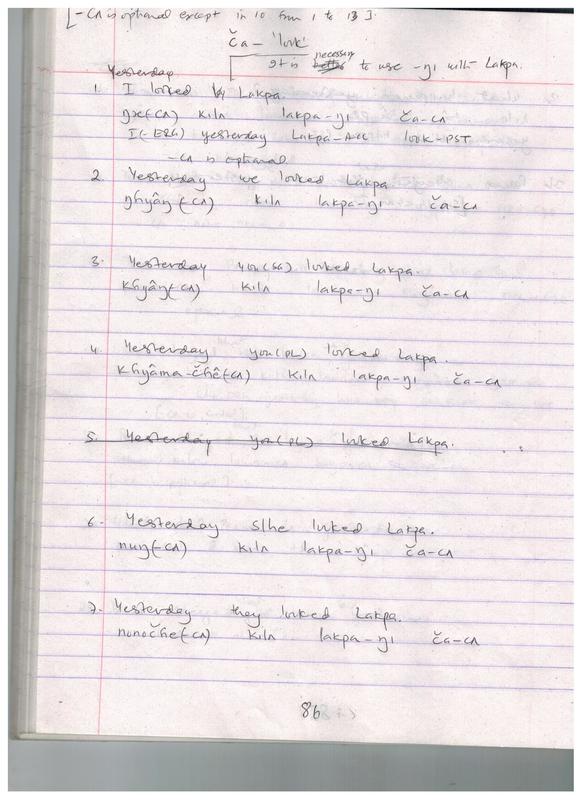 [-cʌ is optional except in 10 from 1 to 13].
ča - 'look'
necessary
It is better to use -ŋı with Lakpa.
Yesterday
1. I looked Lakpa.
ŋx(cʌ) kiln lakpa-ŋı ča-cʌ
I(-ERG) yesterday Lakpa-ACC look-PST
-cʌ is optional
2. Yesterday we looked Lakpa
ŋhyâŋ(-cʌ) kiln lakpa-ŋı ča-cʌ
3. Yesterday you(SG) looked Lakpa.
khyâŋ(-cʌ) kiln lakpa-ŋı ča-cʌ
4. Yesterday you(PL) looked Lakpa.
khyâma-čhê(-cʌ) kiln lakpa-ŋı ča-cʌ
5. Yesterday you(PL) looked Lakpa.
6. Yesterday s/he looked Lakpa.
nuŋ(-cʌ) kiln lakpa-ŋı ča-cʌ
7. Yesterday they looked Lakpa.
nunočhe(-cʌ) kiln lakpa-ŋı ča-cʌ
86